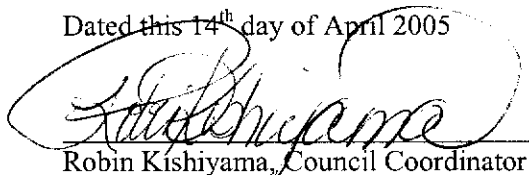 Dated this 14th day of April 2005
Robin Kishiyama
Robin Kishiyama, Council Coordinator